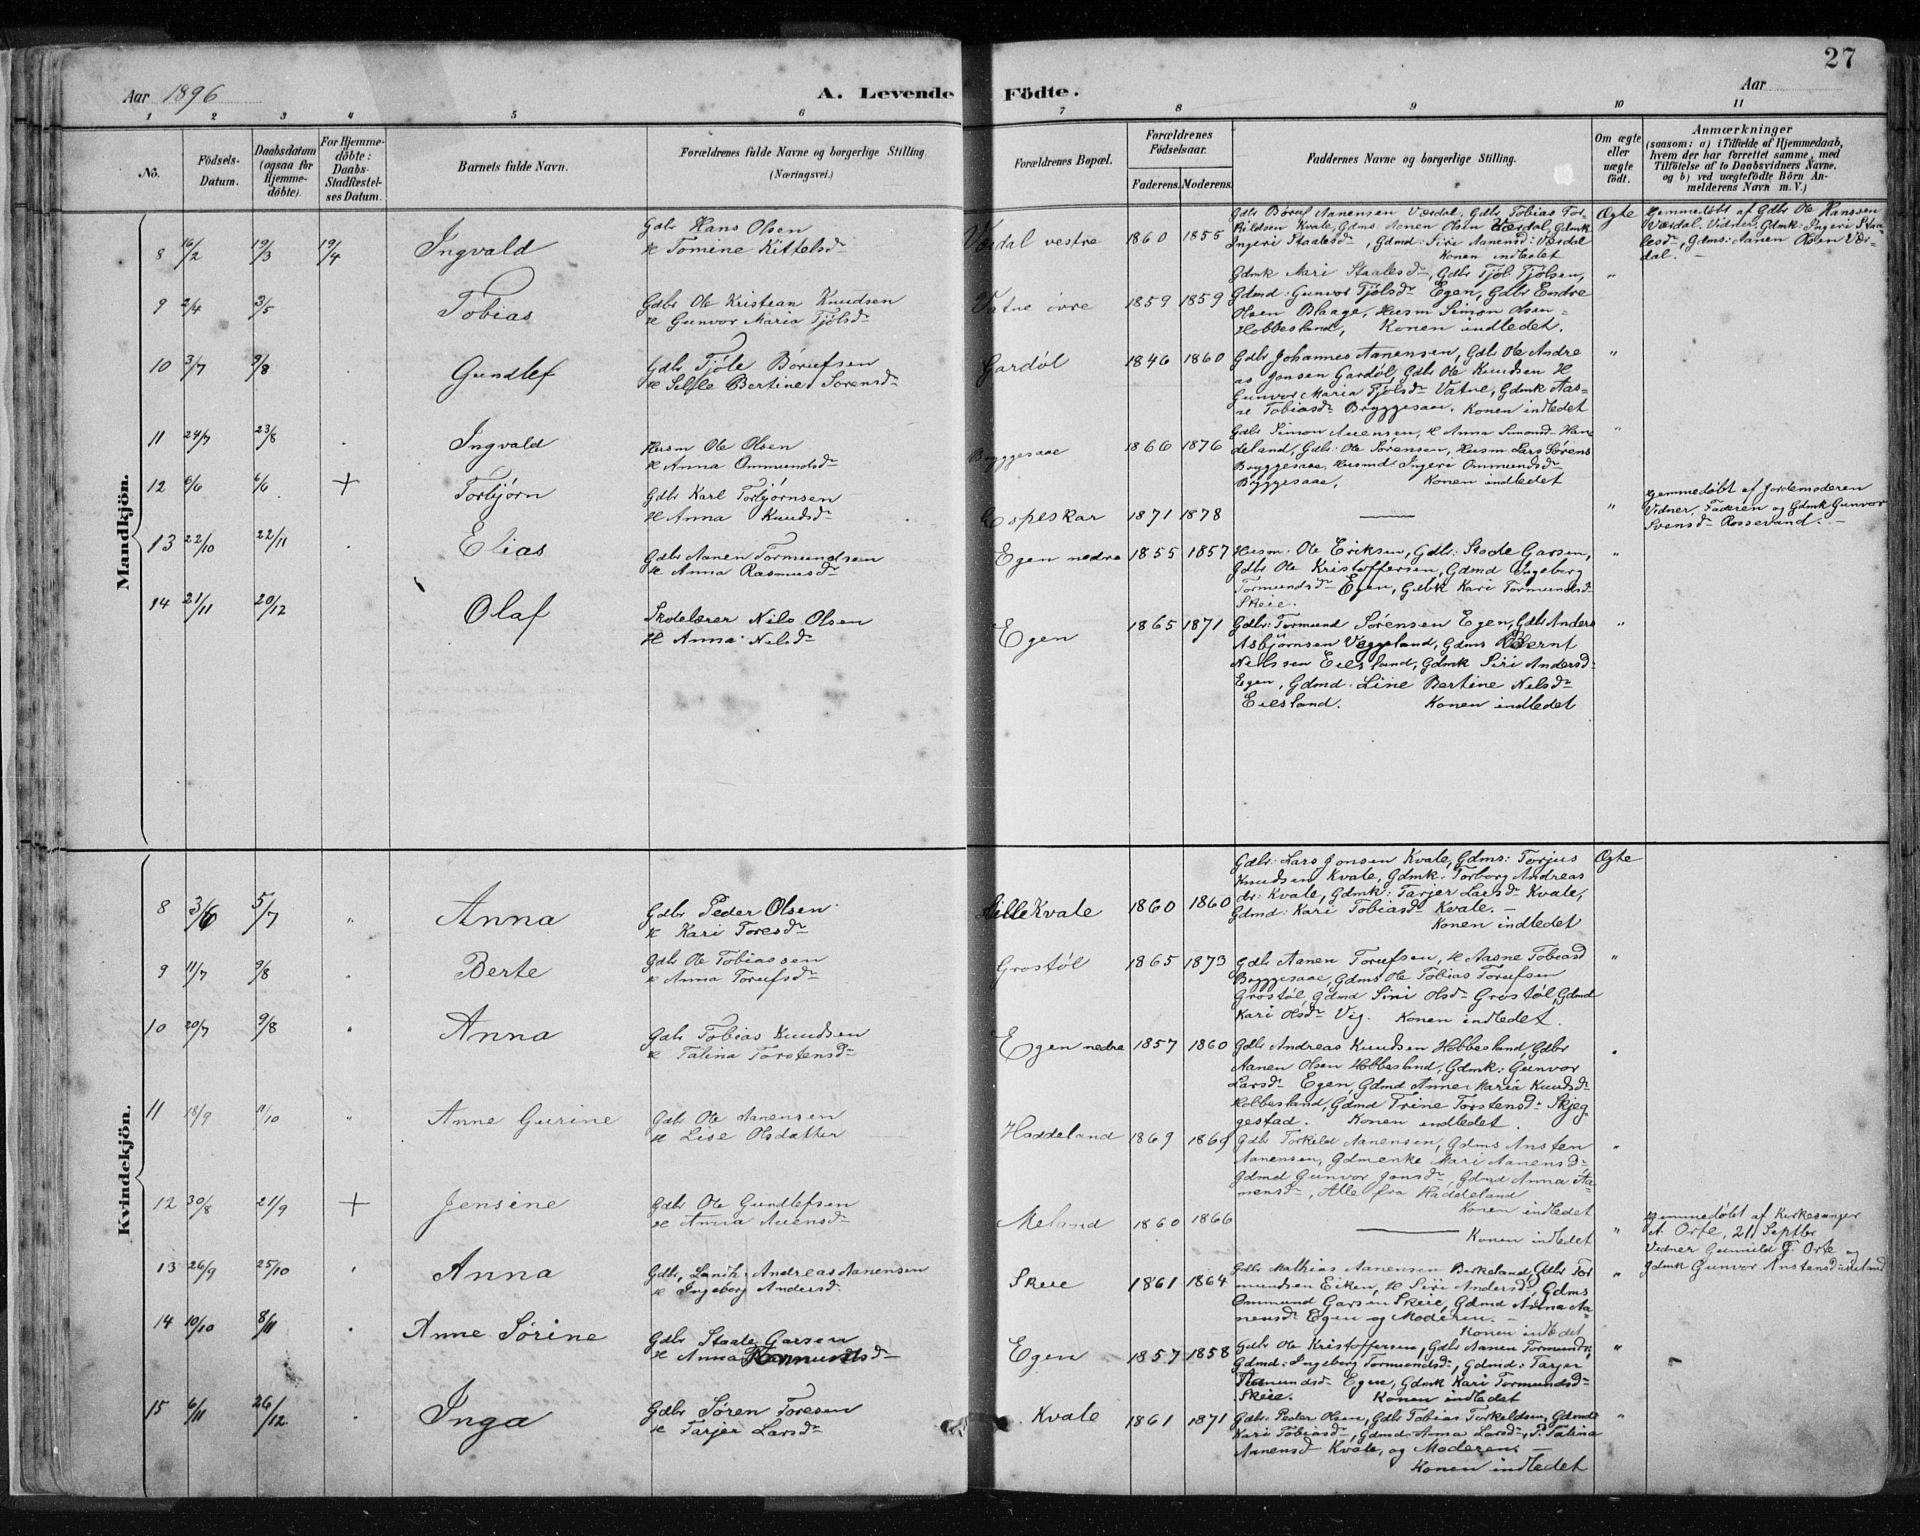 27
Aar 1896
A. Levende Födte.
Aar
1 2 3 4 5 6 7 8 9 10 11
No.
Födsels-Datum.
Daabsdatum (ogsaa för Hjemmedöbte).
For Hjemmedöbte: Daabs-Stadfæstelses Datum.
Barnets fulde Navn.
Forældrenes fulde Navne og borgerlige Stilling. (Næringsvei.)
Forældrenes Bopæl.
Forældrenes Födselsaar.
Faderens. Moderens.
Faddernes Navne og borgerlige Stilling.
Om ægte eller uægte födt.
Anmærkninger
(saasom: a) i Tilfælde af Hjemmedaab, hvem der har forrettet samme, med Tilföielse af to Daabsvidners Navne, og b) ved uægtefödte Börn Anmelderens Navn m. V.)
Mandkjön.
8 16/2 19/3 19/4 Ingvald
Gdbr Hans Olsen
H Tomine Kittelsd
Værdal vestre 1860 1855
Gdbr Børuf Aanensen Værdal, Gdbr Tobias Tor-
kildsen Kvale, Gdms Aanen Olsen Værdal, Gdmk
Ingeri Staalesd, Gdmd: Siri Aanensd: Værdal
Konen indledet
Ægte
Hjemmedøbt af Gdbr Ole Hanssen
Værdal. Vidner: Gdmk: Ingeri Staa-
lesd, Gdms: Aanen Olsen Vær-
dal. –
9 2/4 3/5 Tobias
Gdbr Ole Kristian Knudsen
H Gunvor Maria Tjølsd
Vatne övre 1859 1859
Gdmk Mari Staalesd, Gdbr Tjøl Tjølsen,
Gdmd: Gunvor Tjølsd Egen, Gdbr Endre
Olsen Blaage, Husm Simon Olsen
Hobbesland, Konen indledet.
"
10 3/7 9/8 Gundlef
Gdbr Tjøle Børufsen
H Selfle Bertine Sørensd
Gardøl 1846 1860
Gdbr Johannes Aanensen, Gdbr Ole Andre
as Jonsen Gardøl, Gdbr Ole Knudsen H
Gunvor Maria Tjølsd Vatne, Gdmk Aas-
ne Tobiasd Bryggesaae. Konen indledet
"
11 24/7 23/8 Ingvald
Husm Ole Olsen
H Anna Ommundsd
Bryggesaae 1866 1876
Gdbr Simon Auensen, H Anna Simonsd Had-
deland, Gdbr Ole Sørensen, Husm Lars Sørens
Bryggesaae, Husmd: Ingeri Ommundsd
Bryggesaae, Konen indledet
"
12 6/6 6/6 + Torbjørn
Gdbr Karl Torbjørnsen
H Anna Knudsd
Espeskar 1871 1878
—
"
Hjemmedøbt af Jordemoderen
Vidner, Faderen og Gdmk Gunvor
Svensd Rossevand. –
13 22/10 22/11 Elias
Gdbr Aanen Tormundsen
H Anna Rasmusd
Egen nedre 1855 1857
Husm. Ole Eriksen, Gdbr: Stode Garsen,
Gdbr Ole Kristoffersen, Gdmd Ingeborg
Tormundsd Egen, Gdbk Kari Tormundsd
Skeie.
"
14 21/11 20/12 Olaf
Skolelærer Nils Olsen
H Anna Nilsd
Egen 1865 1871
Gdbr: Tormund Sørensen Egen, Gdbr Anders
Asbjørnsen Veggeland, Gdms Bernt
Nilssen Eiesland, Gdmk Siri Andersd
Egen, Gdmd: Line Bertine Nilsd
Eiesland. Konen indledet
"
Kvindekjön.
8 3/6 5/7 " Anna
Gdbr Peder Olsen
H Kari Toresd
Lille Kvale 1860 1860
Gdbr: Lars Jonsen Kvale, Gdms: Torjus
Knudsen Kvale, Gdmk: Torborg Andreas
dr: Kvale, Gdmk: Tarjer Larsd Kvale,
Gdmd: Kari Tobiasd Kvale. –
Konen indledet
Ægte
9 11/7 9/8 Berte
Gdbr Ole Tobiassen
H Anna Torufsd
Grostøl 1865 1873
Gdbr Aanen Torufsen, H Aasne Tobiasd
Bryggesaae, Gdms Ole Tobias Torufsen
Grostøl, Gdmd Siri Olsd Grostøl, Gdmd
Kari Olsd Vig. Konen indledet.
"
10 20/7 9/8 Anna
Gdbr Tobias Knudsen
H Talina Torstensd
Egen nedre 1857 1860
Gdbr Andreas Knudsen Hobbesland, Gdbr
Aanen Olsen Hobbesland, Gdmk: Gunvor
Larsd Egen, Gdmd Anne Maria Knudsd
Hobbesland, Gdmd Trine Torstensd Skjeg-
gestad. Konen indledet.
11 18/9 11/10 " Anne Gurine
Gdbr Ole Aanensen
H Lise Olsdatter
Haddeland 1869 1869
Gdbr Torkild Aanensen, Gdms Ansten
Aanensen, Gdmenke Mari Aanensd
Gdmd Gunvor Jonsd, Gdmd Anna Aa-
nensd, Alle fra Haddeland
Konen indledet
"
12 30/8 21/9 + Jensine
Gdbr Ole Gundlefsen
H Anna Auensd
Meland 1860 1866
— Konen indledet
"
Hjemmedøbt af Kirkesanger
A. Orte, 21 Septbr
Vidner Gunvild T. Orte og
Gdmk Gunvor Anstensd
13 26/9 25/10 Anna
Gdbr, Landh. Andreas Aanensen
H Ingeborg Andersd
Skeie 1861 1864
Gdbr Mathias Aanensen Birkeland, Gdbr Tor-
mundsen Eiken, H Siri Andersd, Gdms
Ommund Garsen Skeie, Gdmd Anna Aa-
nensd Egen og Moderen. –
Konen indledet
"
14 10/10 8/11 Anne Sørine
Gdbr Staale Garsen
H Anna Tormundsd
Egen 1857 1858
Gdbr Ole Kristoffersen, Gdbr Aanen Tormunds,
Gdmd: Ingeborg Tormundsd, Gdmd: Tarjer
Egen, Gdmk Kari Tormundsd
Skeie. Konen indledet
"
15 6/11 26/12 Inga
Gdbr Søren Toresen
H Tarjer Larsd
Kvale 1861 1871
Gdbr: Peder Olsen, Gdbr Tobias Torkildsen, Gdmd
Kari Tobiasd, Gdmd: Anna Larsd, P. Talina
Aanensd Kvale, og Moderen. –
Konen indledet
"